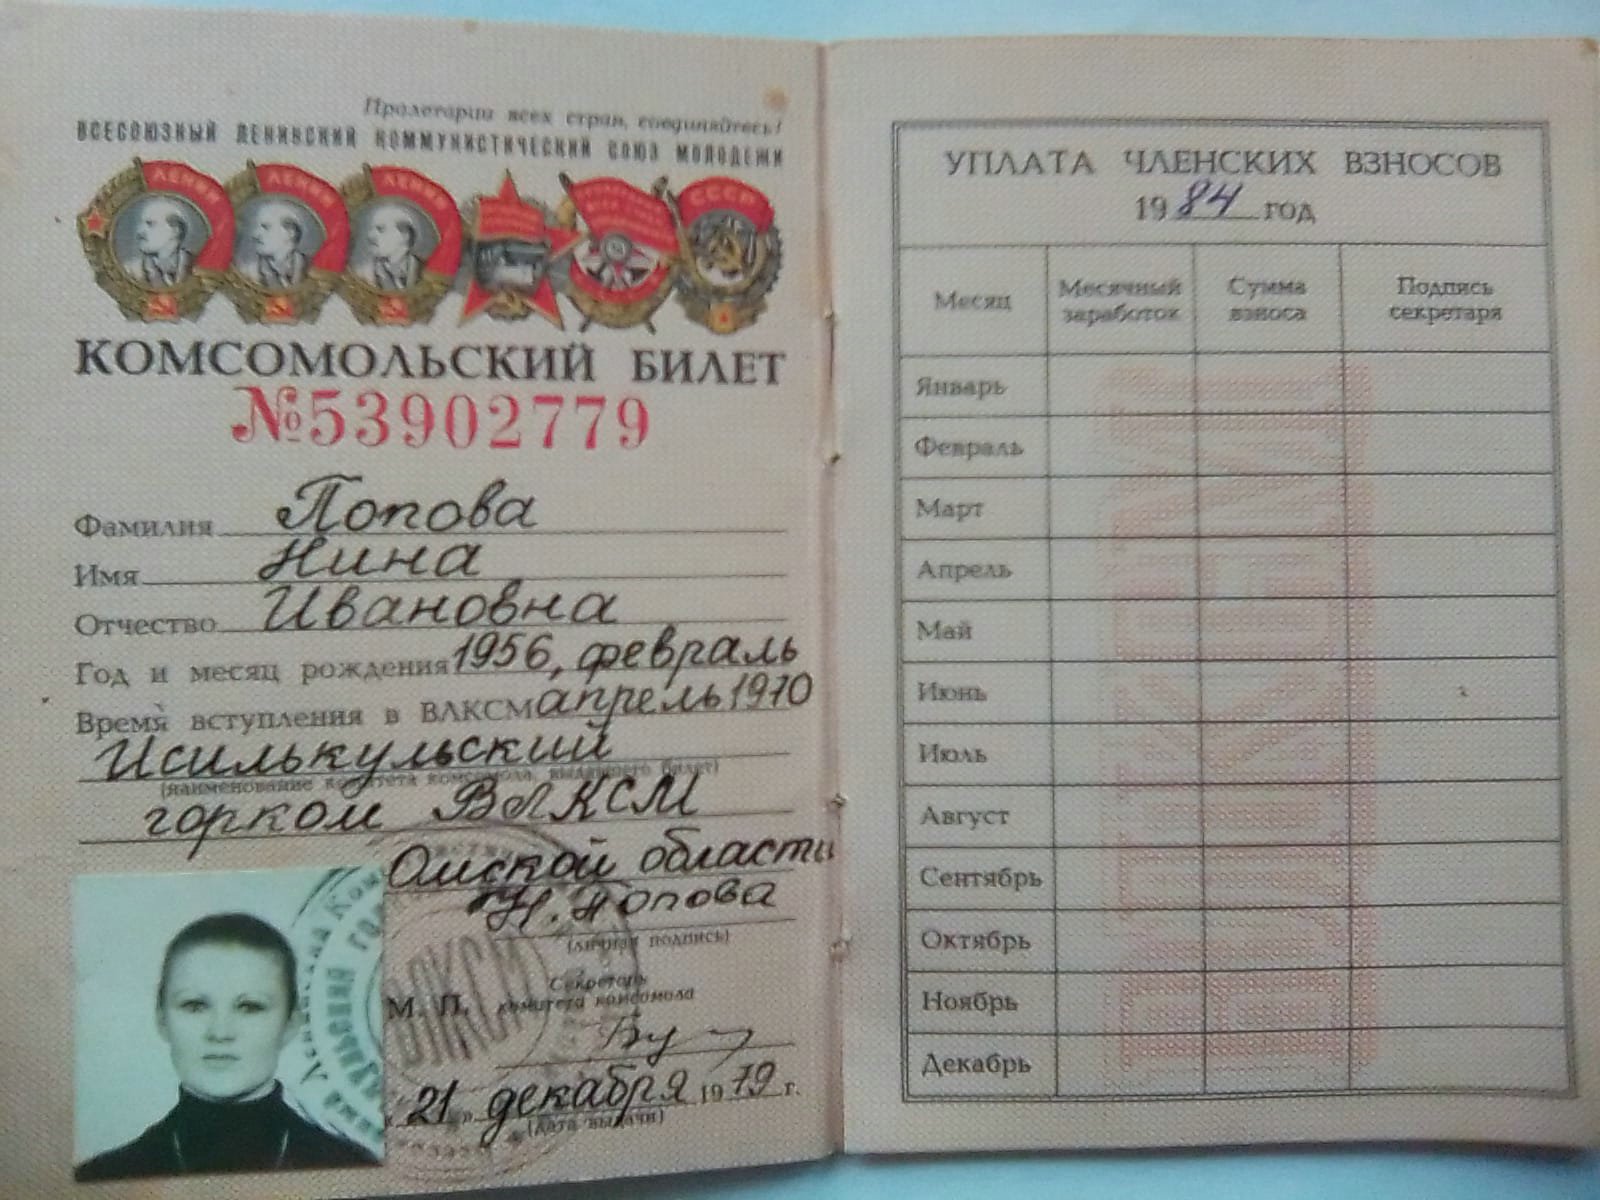 Пролетарии всех стран, соединяйтесь!
ВСЕСОЮЗНЫЙ ЛЕНИНСКИЙ КОММУНИСТИЧЕСКИЙ СОЮЗ МОЛОДЕЖИ
ЛЕНИН ЛЕНИН ЛЕНИН СССР
КОМСОМОЛЬСКИЙ БИЛЕТ
№53902779
Фамилия Попова
Имя Нина
Отчество Ивановна
Год и месяц рождения 1956, февраль
Время вступления в ВЛКСМ апрель 1970
Исилькульский
(наименование комитета комсомола, выдавшего билет)
горком ВЛКСМ
Омской области
Н. Попова
(личная подпись)
М. П. Секретарь
комитета комсомола
"21" декабря 1979 г.
(дата выдачи)
ВЛКСМ
УПЛАТА ЧЛЕНСКИХ ВЗНОСОВ
1984 год
Месяц Месячный заработок Сумма взноса Подпись секретаря
Январь
Февраль
Март
Апрель
Май
Июнь
Июль
Август
Сентябрь
Октябрь
Ноябрь
Декабрь
ВЛКСМ